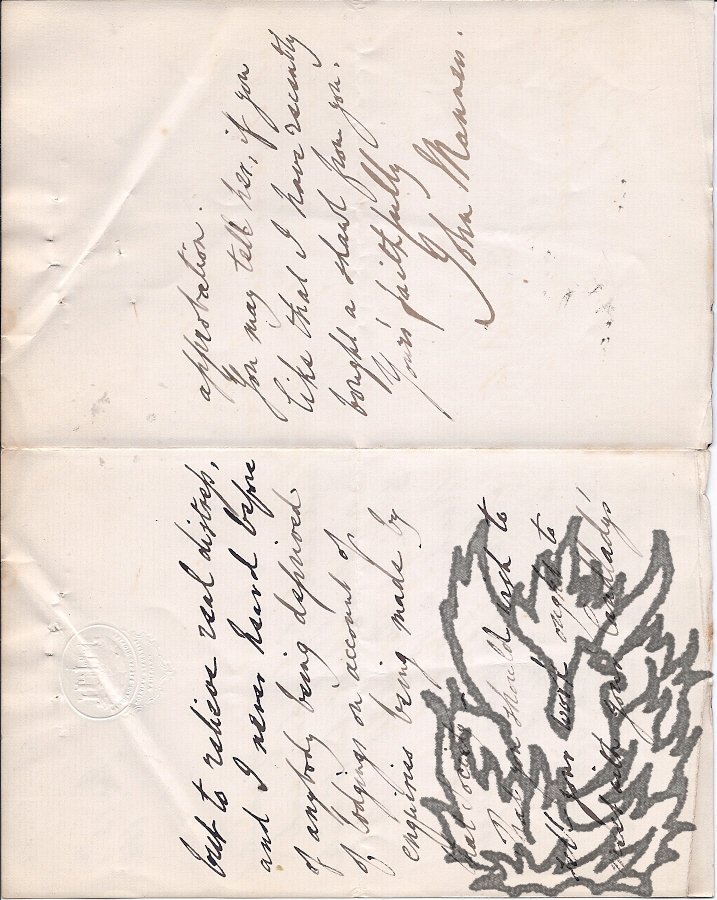 but to relieve real distress,
and I never heard before
of anybody being deprived
of lodgings on account of
enquiries being made by
that Society.
That you should wish to
sell your work ought to
meet with your landlady's
approbation.
You may tell her, if you
like that I have recently
bought a shawl from you.
Yours faithfully
John Manners.